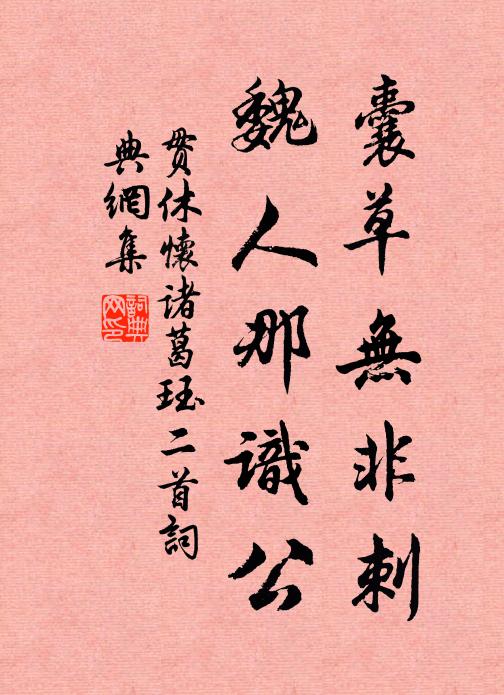 囊草無非刺
魏人那識公
貫休懷諸葛珏二首詞
典網集
詞典
网印